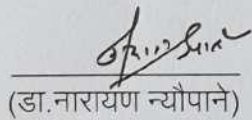 (डा.नारायण न्यौपाने)